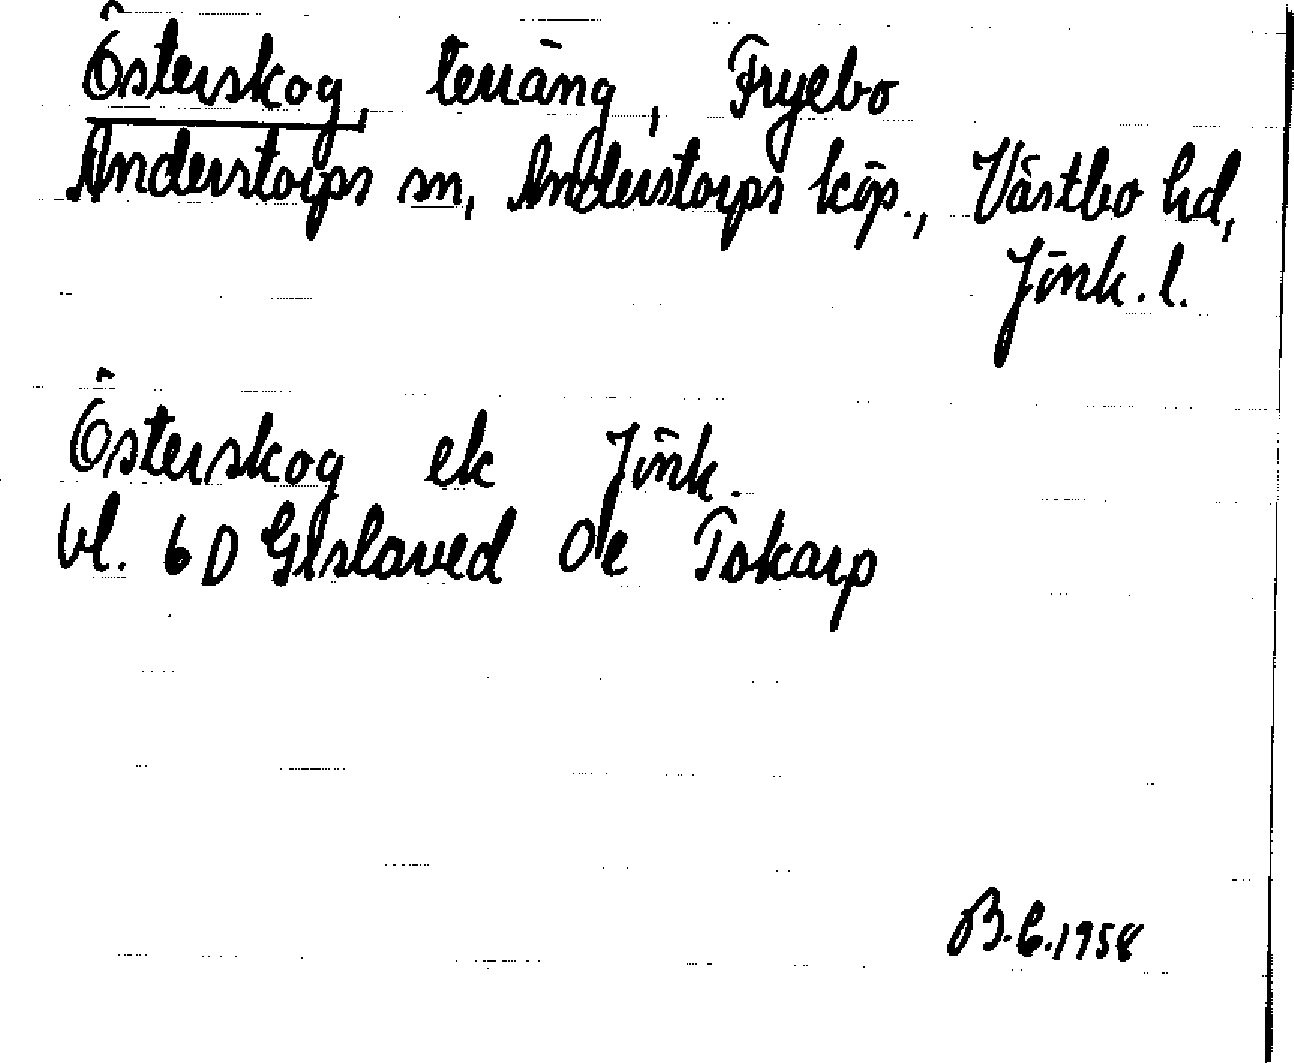 Österskog, terräng, Fryebo
Anderstorps sn, Anderstorps köp., Västbo hd,
Jönk. l.
Österskog ek Jönk.
bl. 6D Gislaved Oe Tokarp
B.C. 1958